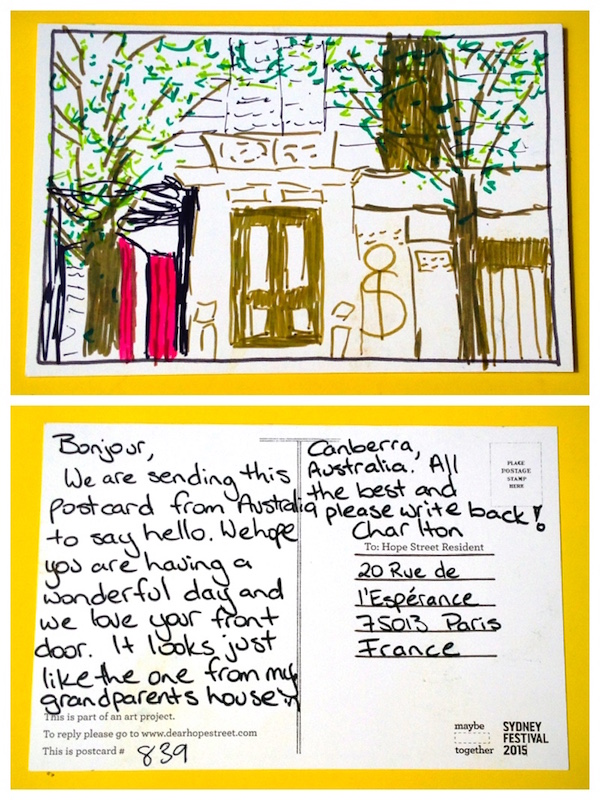 Bonjour,
We are sending this
postcard from Australia
to say hello. We hope
you are having a
wonderful day and
we love your front
door. It looks just
like the one from my
grandparents house in
Canberra,
Australia. All
the best and
please write back!
Charlton
This is part of an art project.
To reply please go to www.dearhopestreet.com
This is postcard # 839
PLACE
POSTAGE
STAMP
HERE
To: Hope Street Resident
20 Rue de
l'Espérance
75013 Paris
France
maybe
together
SYDNEY
FESTIVAL
2015